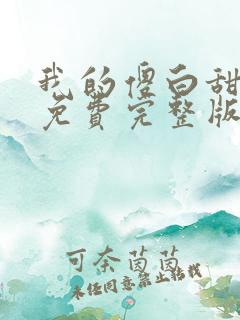 我的傻白甜
免费完整版
可奈茵茵
未经同意禁止转载